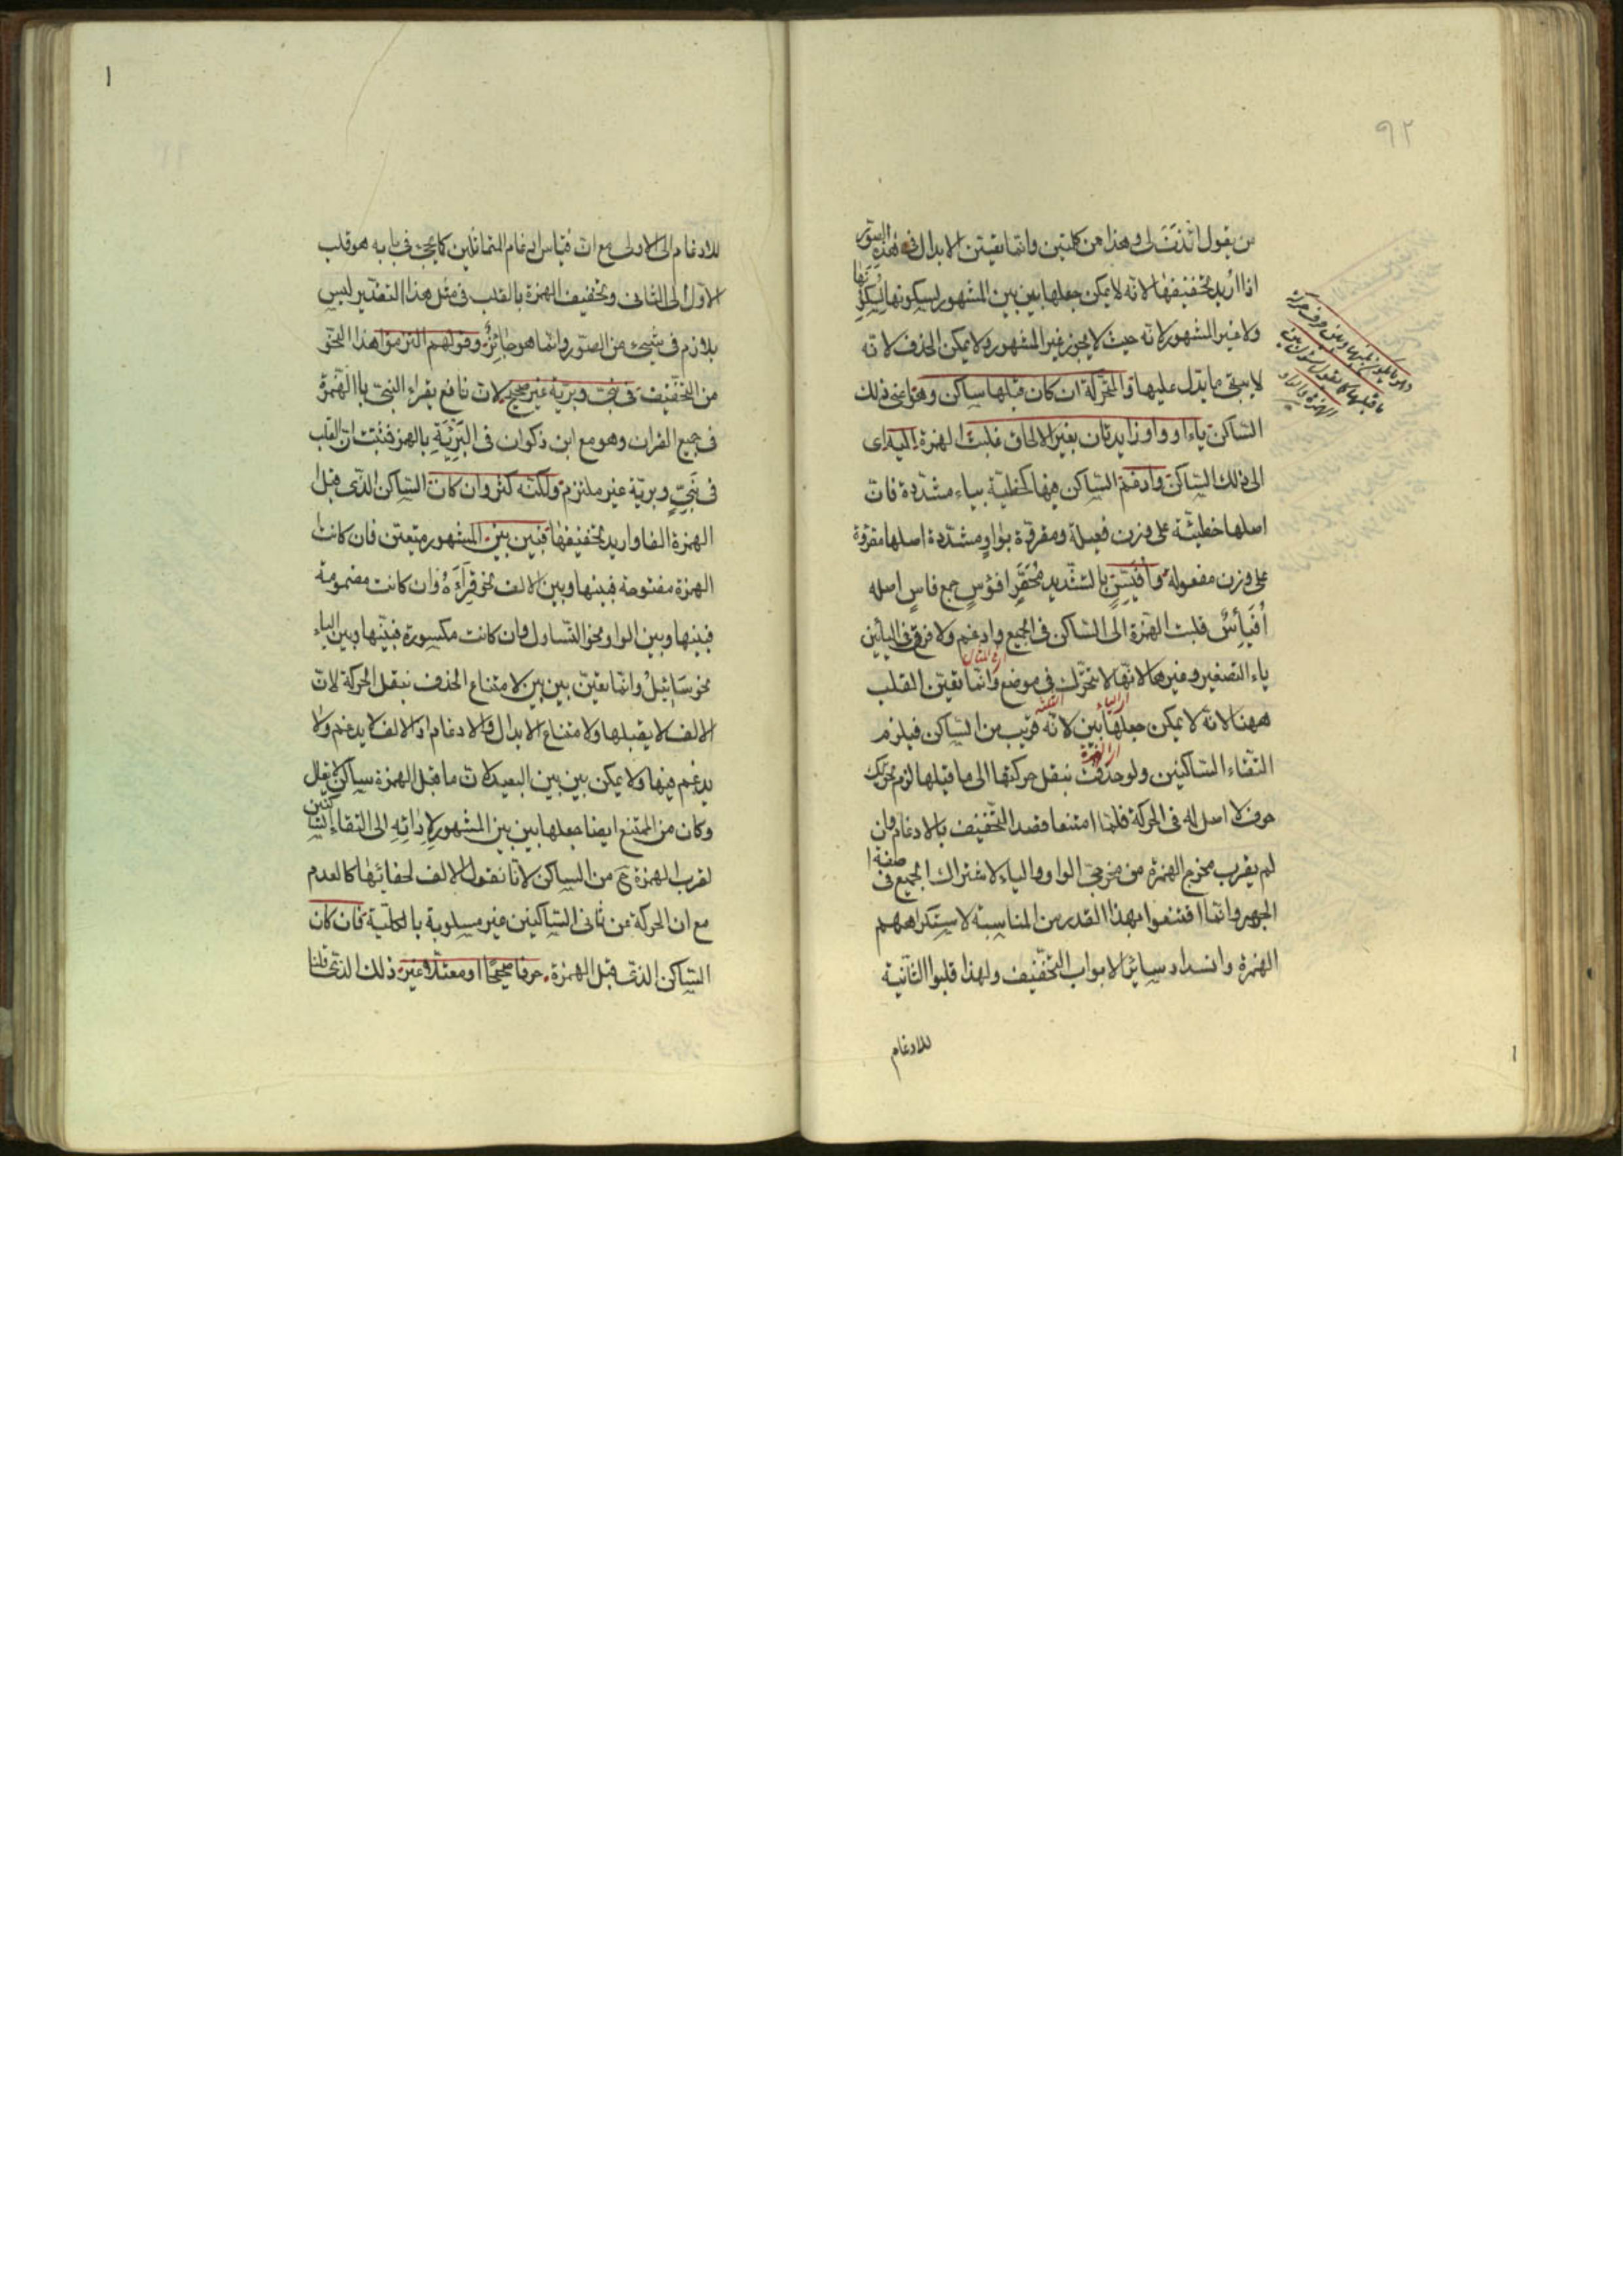 ٩٢
من يقول ائذن لى وهذا من كلمتين وانما يتعين الابدال فى هذه الصور
اذا اريد تخفيفها لانه لا يمكن جعلها بين بين المشهور لسكونها
ولا غير المشهور لانه حيث لا يجوز غير المشهور ولا يمكن الحذف لانه
لا يبقى ما يدل عليها والمتحركة ان كان قبلها ساكن وهو اعنى ذلك
الساكن ياء او واو زايدتان بغير الالحاق قلبت الهمزة اليه اى
الى ذلك الساكن وادغم الساكن فيها كخطية بياء مشددة فان
اصلها خطيئة على وزن فعيلة ومقروة بواو مشددة اصلها مقروءة
على وزن مفعولة وافيس بالتشديد محقر افؤس جمع فاس اصله
أفيئس قلبت الهمزة الى الساكن فى الجميع وادغم ولا فرق فى اليائين
ياء التصغير وغيرها لانها لا تتحرك فى موضع وانما تعين القلب
ههنا لانه لا يمكن جعلها بين لانه قريب من الساكن فيلزم
التقاء الساكنين ولو حذفت بنقل حركتها الى ما قبلها لزم تحريك
حرف لا اصل له فى الحركة فلما امتنعا قصد التخفيف بالادغام وان
لم يقرب مخرج الهمزة من مخرجى الواو والياء لاشتراك الجميع فى صفة
الجهر وانما اقتنعوا بهذا القدر من المناسبة لاستكراههم
الهمزة وانسداد سائر ابواب التخفيف ولهذا قلبوا الثانية
للادغام
للادغام الى الاولى مع ان قياس ادغام المتماثلين كما يجئ فى بابه هو قلب
الاول الى الثانى وتخفيف الهمزة بالقلب فى مثل هذا التقدير ليس
بلازم فى شىء من الصور وانما هو جائز وقولهم التزموا هذا النحو
من التخفيف فى نبى وبرية غير صحيح لان نافع يقراء النبئ باالهمزة
فى جميع القران وهو مع ابن ذكوان فى البريئة بالهمز فثبت ان القلب
فى نبى وبرية غير ملتزم ولكنه كثر وان كان الساكن الذى قبل
الهمزة الفا واريد تخفيفها فبين بين المشهور متعين فان كانت
الهمزة مفتوحة فبينها وبين الالف نحو قراءة وان كانت مضمومة
فبينها وبين الواو نحو التساول وان كانت مكسورة فبينها وبين الياء
نحو سائيل وانما تعين بين بين لامتناع الحذف بنقل الحركة لان
الالف لا يقبلها ولامتناع الابدال والادغام اذ الالف لا يدغم ولا
يدغم فيها ولا يمكن بين بين البعيد لان ما قبل الهمزة ساكن لا يقال
وكان من الممتنع ايضا جعلها بين بين المشهور لادائه الى التقاء الساكنين
لقرب الهمزة ح من الساكن لانا نقول الالف لخفائها كالعدم
مع ان الحركة من ثانى الساكنين غير مسلوبة بالكلية فان كان
الساكن الذى قبل الهمزة حرفا صحيحا او معتلا غير ذلك الذى قلنا